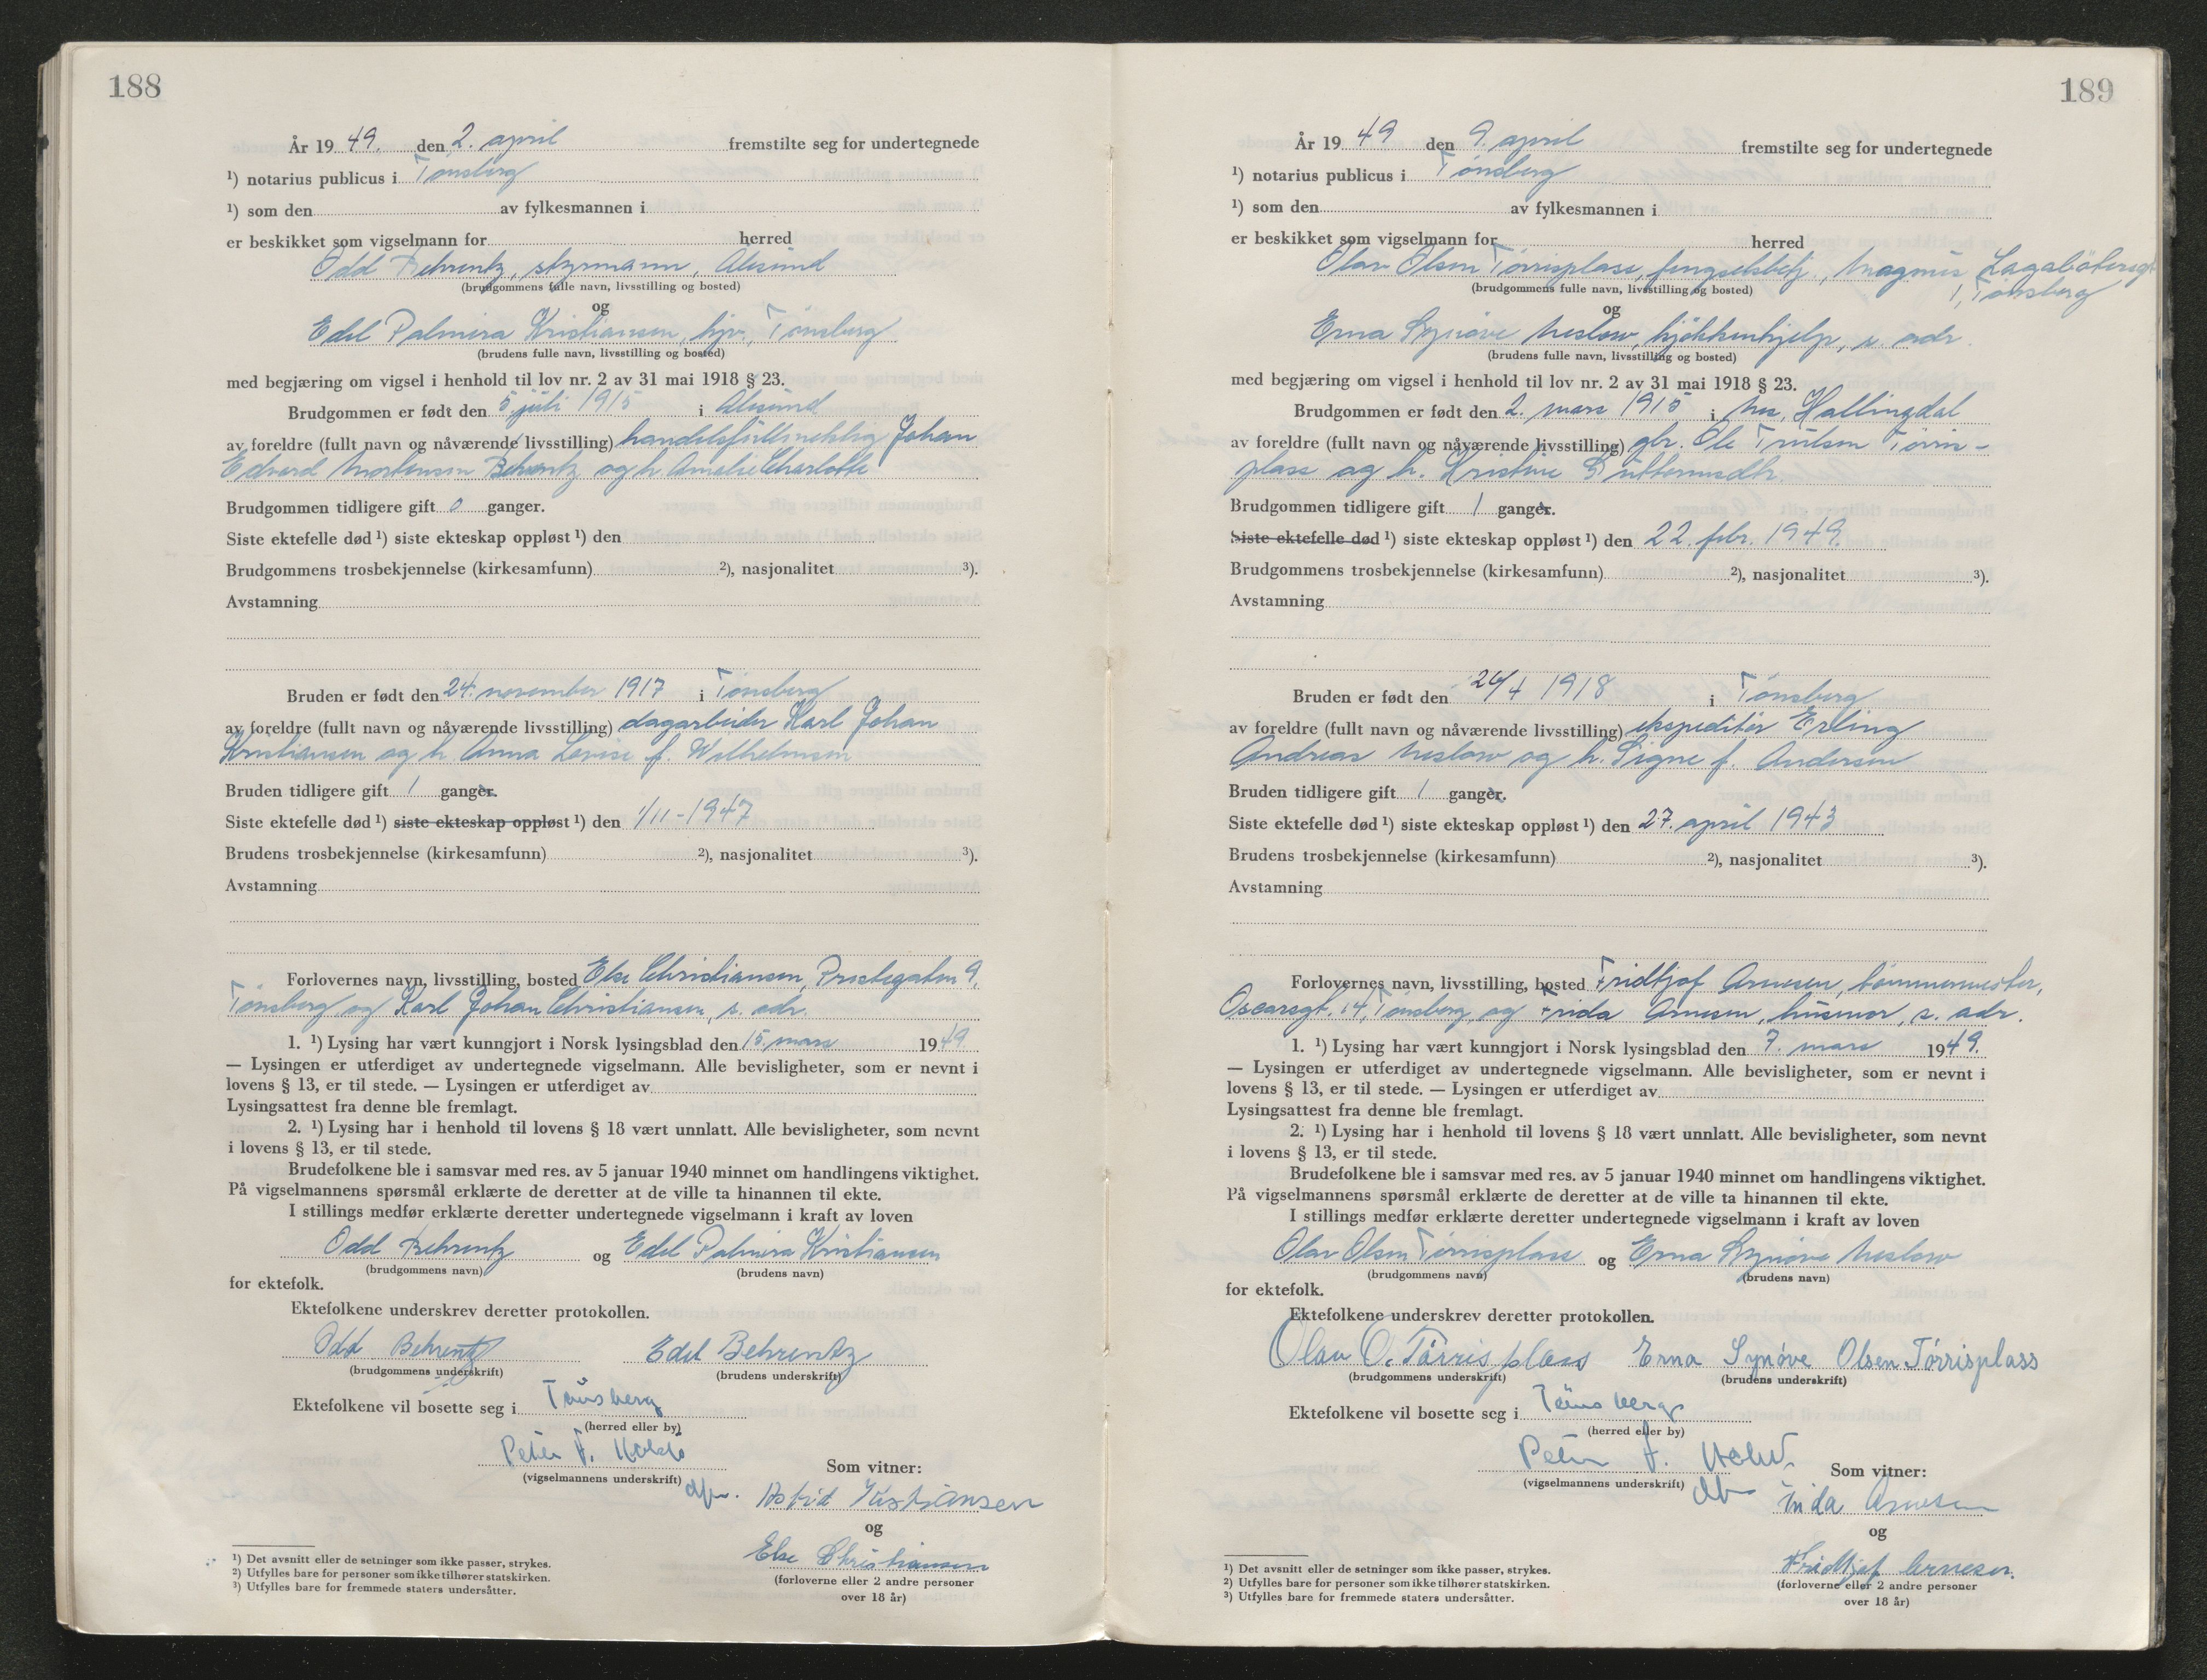 188
År 1949. den 2. april fremstilte seg for undertegnede
¹) notarius publicus i Tønsberg
¹) som den av fylkesmannen i
er beskikket som vigselmann for herred
Odd Behrentz, styrmann, Ålesund
(brudgommens fulle navn, livsstilling og bosted)
og
Edel Palmira Kristiansen, hjv., Tønsberg
(brudens fulle navn, livsstilling og bosted)
med begjæring om vigsel i henhold til lov nr. 2 av 31 mai 1918 § 23.
Brudgommen er født den 5. juli 1915 i Ålesund
av foreldre (fullt navn og nåværende livsstilling) handelsfullmektig Johan
Edvard Mortensen Behrentz og h. Amalie Charlotte
Brudgommen tidligere gift 0 ganger.
Siste ektefelle død ¹) siste ekteskap oppløst ¹) den
Brudgommens trosbekjennelse (kirkesamfunn) ²), nasjonalitet ³).
Avstamning
Bruden er født den 24. november 1917 i Tønsberg
av foreldre (fullt navn og nåværende livsstilling) dagarbeider Karl Johan
Kristiansen og h. Anna Lovise f. Wilhelmsen
Bruden tidligere gift 1 ganger.
Siste ektefelle død ¹) siste ekteskap oppløst ¹) den 1/11-1947
Brudens trosbekjennelse (kirkesamfunn) ²), nasjonalitet ³).
Avstamning
Forlovernes navn, livsstilling, bosted Else Christiansen, Prestegaten 9,
Tønsberg og Karl Johan Christiansen, s. adr.
1. ¹) Lysing har vært kunngjort i Norsk lysingsblad den 15. mars 1949
— Lysingen er utferdiget av undertegnede vigselmann. Alle bevisligheter, som er nevnt i
lovens § 13, er til stede. — Lysingen er utferdiget av
Lysingsattest fra denne ble fremlagt.
2. ¹) Lysing har i henhold til lovens § 18 vært unnlatt. Alle bevisligheter, som nevnt
i lovens § 13, er til stede.
Brudefolkene ble i samsvar med res. av 5 januar 1940 minnet om handlingens viktighet.
På vigselmannens spørsmål erklærte de deretter at de ville ta hinannen til ekte.
I stillings medfør erklærte deretter undertegnede vigselmann i kraft av loven
Odd Behrentz og Edel Palmira Kristiansen
(brudgommens navn) (brudens navn)
for ektefolk.
Ektefolkene underskrev deretter protokollen.
Odd Behrentz Edel Behrentz
(brudgommens underskrift) (brudens underskrift)
Ektefolkene vil bosette seg i Tønsberg
(herred eller by)
Peter F.
(vigselmannens underskrift) Som vitner:
Astrid Kristiansen
og
Else Christiansen
(forloverne eller 2 andre personer
over 18 år)
¹) Det avsnitt eller de setninger som ikke passer, strykes.
²) Utfylles bare for personer som ikke tilhører statskirken.
³) Utfylles bare for fremmede staters undersåtter.
189
År 1949 den 9. april fremstilte seg for undertegnede
¹) notarius publicus i Tønsberg
¹) som den av fylkesmannen i
er beskikket som vigselmann for herred
Olav Olsen Tørrisplass, fengselsbetj., Magnus Lagabøtersgt
1, Tønsberg
(brudgommens fulle navn, livsstilling og bosted)
og
Erna Synøve Neslow, kjøkkenhjelp, s. adr.
(brudens fulle navn, livsstilling og bosted)
med begjæring om vigsel i henhold til lov nr. 2 av 31 mai 1918 § 23.
Brudgommen er født den 2. mars 1915 i Nes, Hallingdal
av foreldre (fullt navn og nåværende livsstilling) gbr. Ole Trulsen Tørris-
plass og h. Kristine Guttormsdtr.
Brudgommen tidligere gift 1 ganger.
Siste ektefelle død ¹) siste ekteskap oppløst ¹) den 22. febr. 1949.
Brudgommens trosbekjennelse (kirkesamfunn) ²), nasjonalitet ³).
Avstamning
Bruden er født den 26/4 1918 i Tønsberg
av foreldre (fullt navn og nåværende livsstilling) ekspeditør Erling
Andreas Neslow og h. Signe f. Andersen
Bruden tidligere gift 1 ganger.
Siste ektefelle død ¹) siste ekteskap oppløst ¹) den 27. april 1943
Brudens trosbekjennelse (kirkesamfunn) ²), nasjonalitet ³).
Avstamning
Forlovernes navn, livsstilling, bosted Fridtjof Arnesen, tømmermester,
Oscarsgt. 14, Tønsberg, og Frida Arnesen, husmor, s. adr.
1. ¹) Lysing har vært kunngjort i Norsk lysingsblad den 7. mars 1949.
— Lysingen er utferdiget av undertegnede vigselmann. Alle bevisligheter, som er nevnt i
lovens § 13, er til stede. — Lysingen er utferdiget av
Lysingsattest fra denne ble fremlagt.
2. ¹) Lysing har i henhold til lovens § 18 vært unnlatt. Alle bevisligheter, som nevnt
i lovens § 13, er til stede.
Brudefolkene ble i samsvar med res. av 5 januar 1940 minnet om handlingens viktighet.
På vigselmannens spørsmål erklærte de deretter at de ville ta hinannen til ekte.
I stillings medfør erklærte deretter undertegnede vigselmann i kraft av loven
Olav Olsen Tørrisplass og Erna Synøve Neslow
(brudgommens navn) (brudens navn)
for ektefolk.
Ektefolkene underskrev deretter protokollen.
Olav O. Tørrisplass Erna Synøve Olsen Tørrisplass
(brudgommens underskrift) (brudens underskrift)
Ektefolkene vil bosette seg i Tønsberg
(herred eller by)
Peter F.
(vigselmannens underskrift) Som vitner:
Frida Arnesen
og
Fridtjof Arnesen.
(forloverne eller 2 andre personer
over 18 år)
¹) Det avsnitt eller de setninger som ikke passer, strykes.
²) Utfylles bare for personer som ikke tilhører statskirken.
³) Utfylles bare for fremmede staters undersåtter.